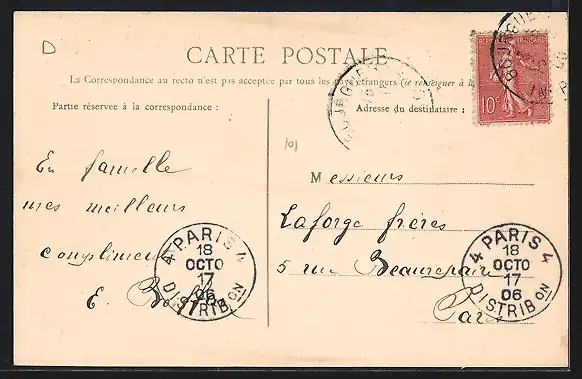 D
CARTE POSTALE
La Correspondance au recto n'est pas acceptée par tous les pays étrangers (se renseigner à la
Partie réservée à la correspondance :
Adresse du destinataire :
REPUBLIQUE FRANÇAISE
10c
BOURGUE
101
En famille
mes meilleurs
compliments
E.
Messieurs
Laforge frères
5 rue Beaurepaire
Paris
4 PARIS 4
18
OCTO
17
06
DISTRIBON
4 PARIS 4
18
OCTO
17
06
DISTRIBON